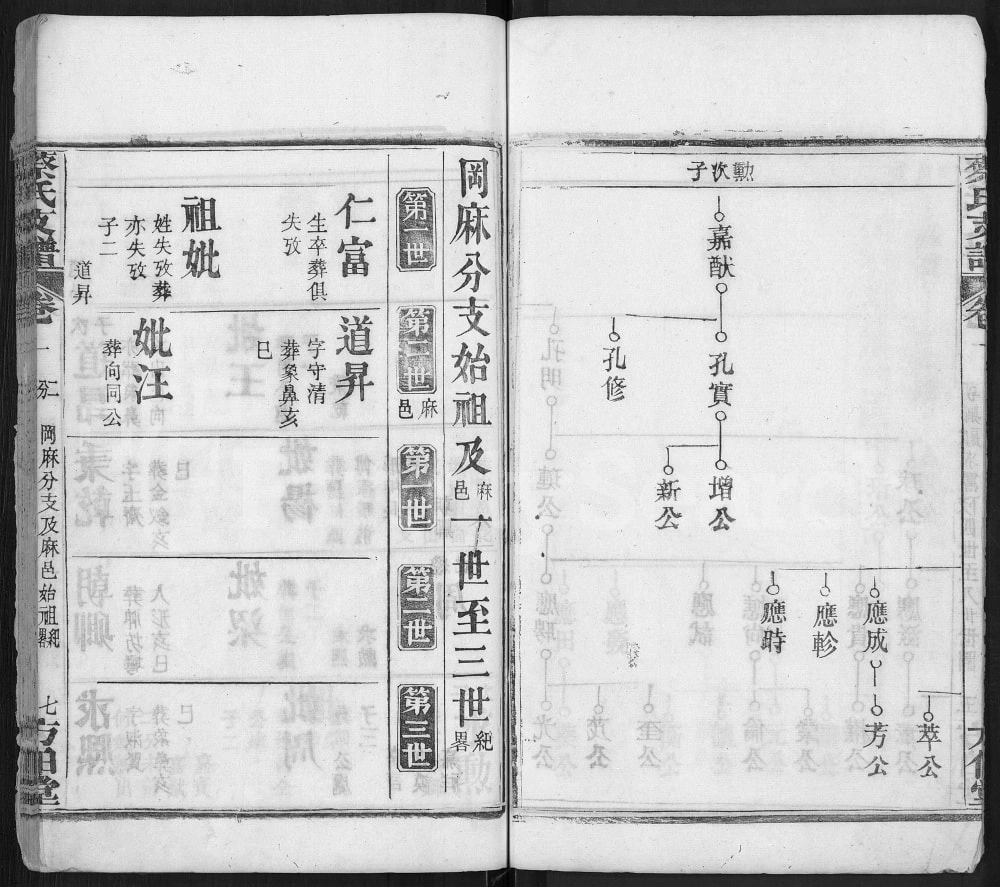 勳次子
嘉猷
孔實
孔修
增公
新公
應成
應軫
應時
萃公
芳公
岡麻分支始祖及麻邑一世至三世紀畧
第一世
第二世
麻邑
第一世
第二世
第三世
仁富
生卒葬俱
失攷
祖妣
姓失攷葬
亦失攷
子二
道昇
道昇
字守清
葬象鼻亥
巳
妣汪
葬向同公
蔡氏支譜
卷一
岡麻分支及麻邑始祖紀畧
七